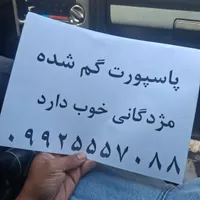 پاسپورت گم شده
مژدگانی خوب دارد
۰۹۹۲۵۵۵۷۰۸۸